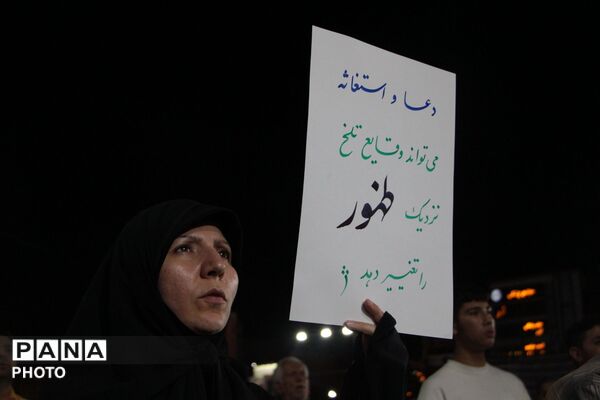 دعا و استغاثه
می‌تواند وقایع تلخ
نزدیک ظهور
را تغییر دهد
PANA
PHOTO